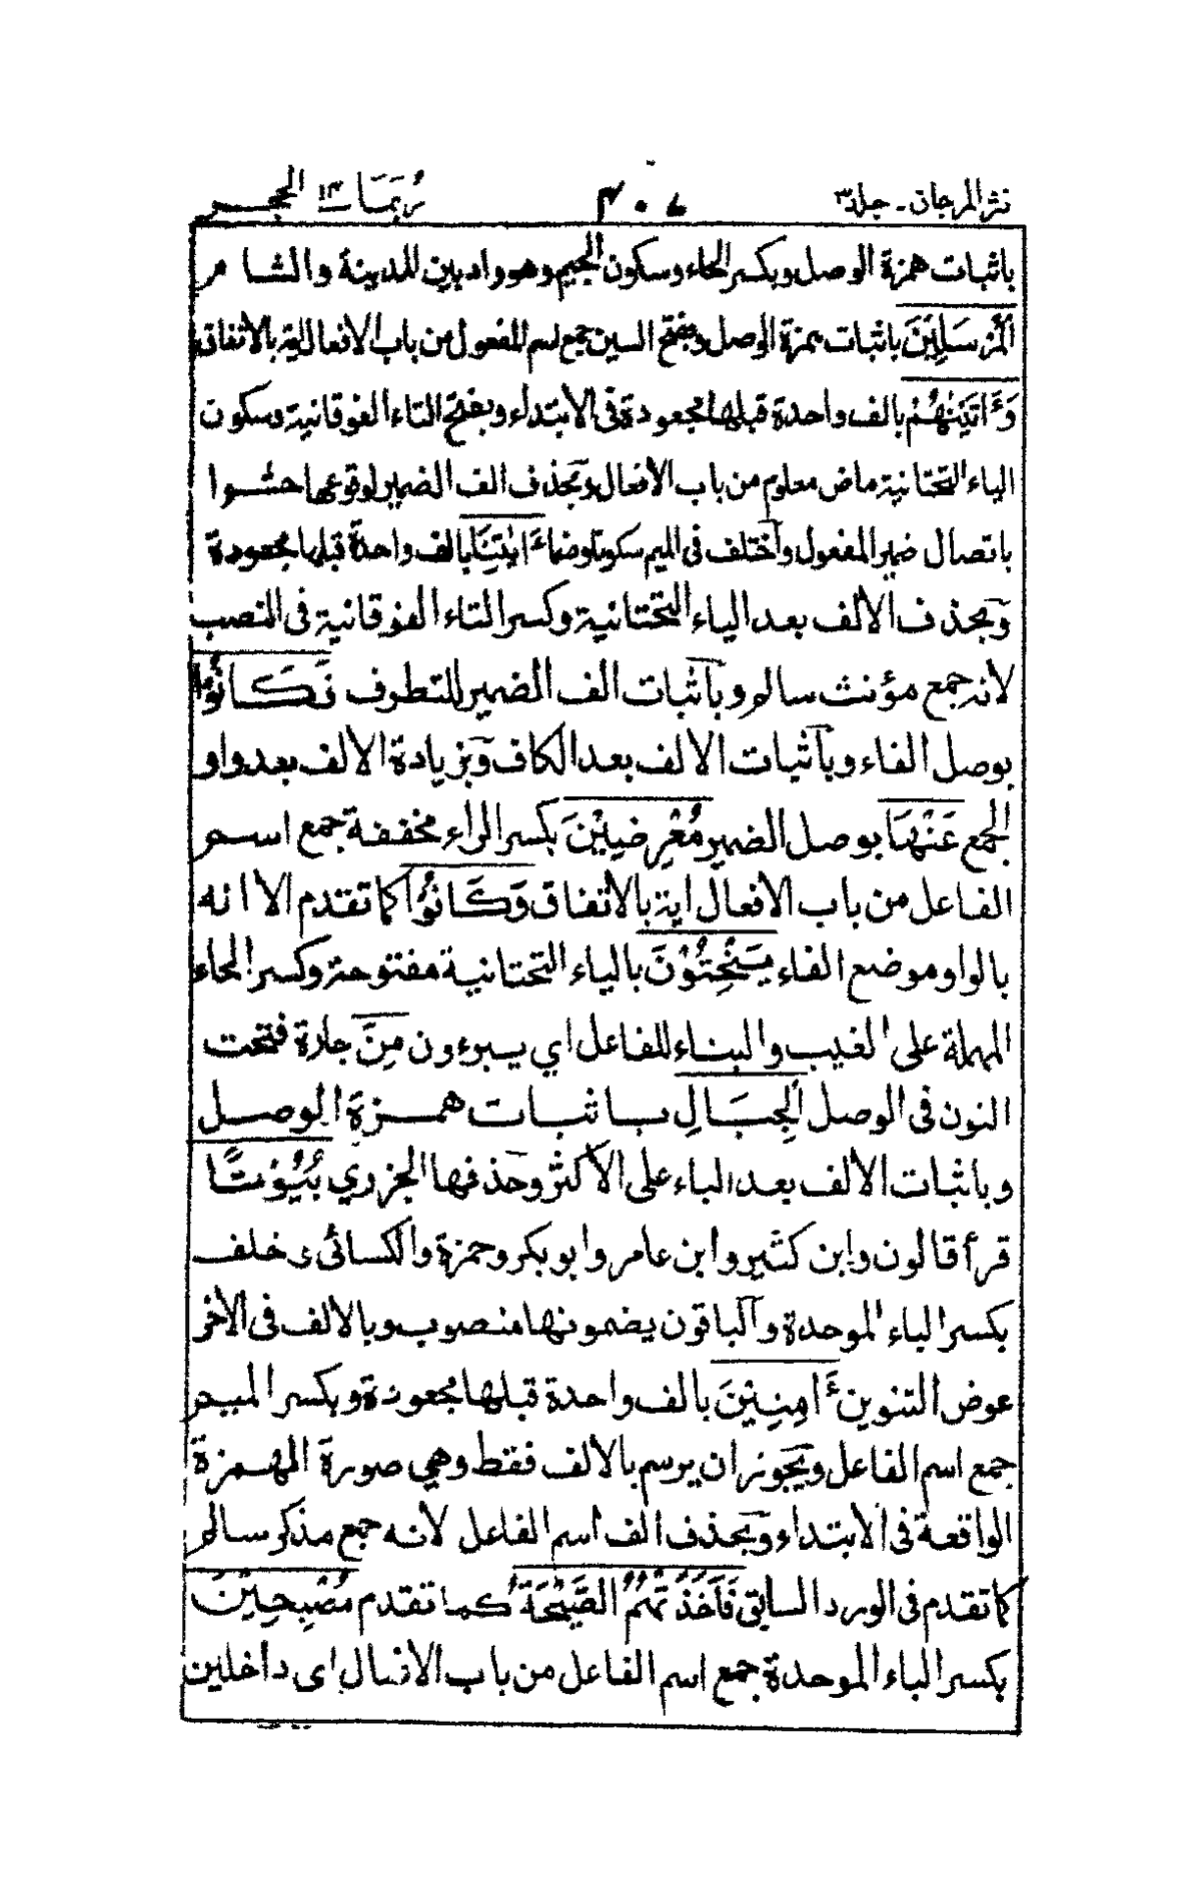 نثر المرجان - جلد ٣ ٣٠٧ رُبَمَا ١٤ الحجر
باثبات همزة الوصل وبكسر الحاء وسكون الجيم وهو واد بين المدينة والشام
اَلْمُرْسَلِيْنَ باثبات همزة الوصل وبفتح السين جمع اسم المفعول من باب الافعال اية بالاتفاق
وَءَاتَيْنٰهُمْ بالف واحدة قبلها مجعودة في الابتداء وبفتح التاء الفوقانية وسكون
الياء التحتانية ماض معلوم من باب الافعال وبحذف الف الضمير لوقوعها حشوا
باتصال ضمير المفعول واختلف في الميم سكونا وضما ءَايٰتِنَا بالف واحدة قبلها مجعودة
وبحذف الالف بعد الياء التحتانية وكسر التاء الفوقانية في النصب
لانه جمع مؤنث سالم وباثبات الف الضمير للتطرف فَكَانُوْا
بوصل الفاء وباثبات الالف بعد الكاف وبزيادة الالف بعد واو
الجمع عَنْهَا بوصل الضمير مُعْرِضِيْنَ بكسر الراء مخففة جمع اسم
الفاعل من باب الافعال اية بالاتفاق وَكَانُوْا كما تقدم الا انه
بالواو موضع الفاء يَنْحِتُوْنَ بالياء التحتانية مفتوحة وكسر الحاء
المهملة على الغيب والبناء للفاعل اي يبرءون مِنَ جارة فتحت
النون في الوصل اَلْجِبَالِ باثبات همزة الوصل
وباثبات الالف بعد الباء على الاكثر وحذفها الجزري بُيُوْتًا
قرأ قالون وابن كثير وابن عامر وابو بكر وحمزة والكسائي و خلف
بكسر الباء الموحدة والباقون يضمونها منصوب وبالالف في الاخر
عوض التنوين ءَامِنِيْنَ بالف واحدة قبلها مجعودة وبكسر الميم
جمع اسم الفاعل ويجوز ان يرسم بالالف فقط وهي صورة الهمزة
الواقعة في الابتداء وبحذف الف اسم الفاعل لانه جمع مذكر سالم
كما تقدم في الورد السابق فَاَخَذَتْهُمُ الصَّيْحَةُ كما تقدم مُصْبِحِيْنَ
بكسر الباء الموحدة جمع اسم الفاعل من باب الافعال اى داخلين